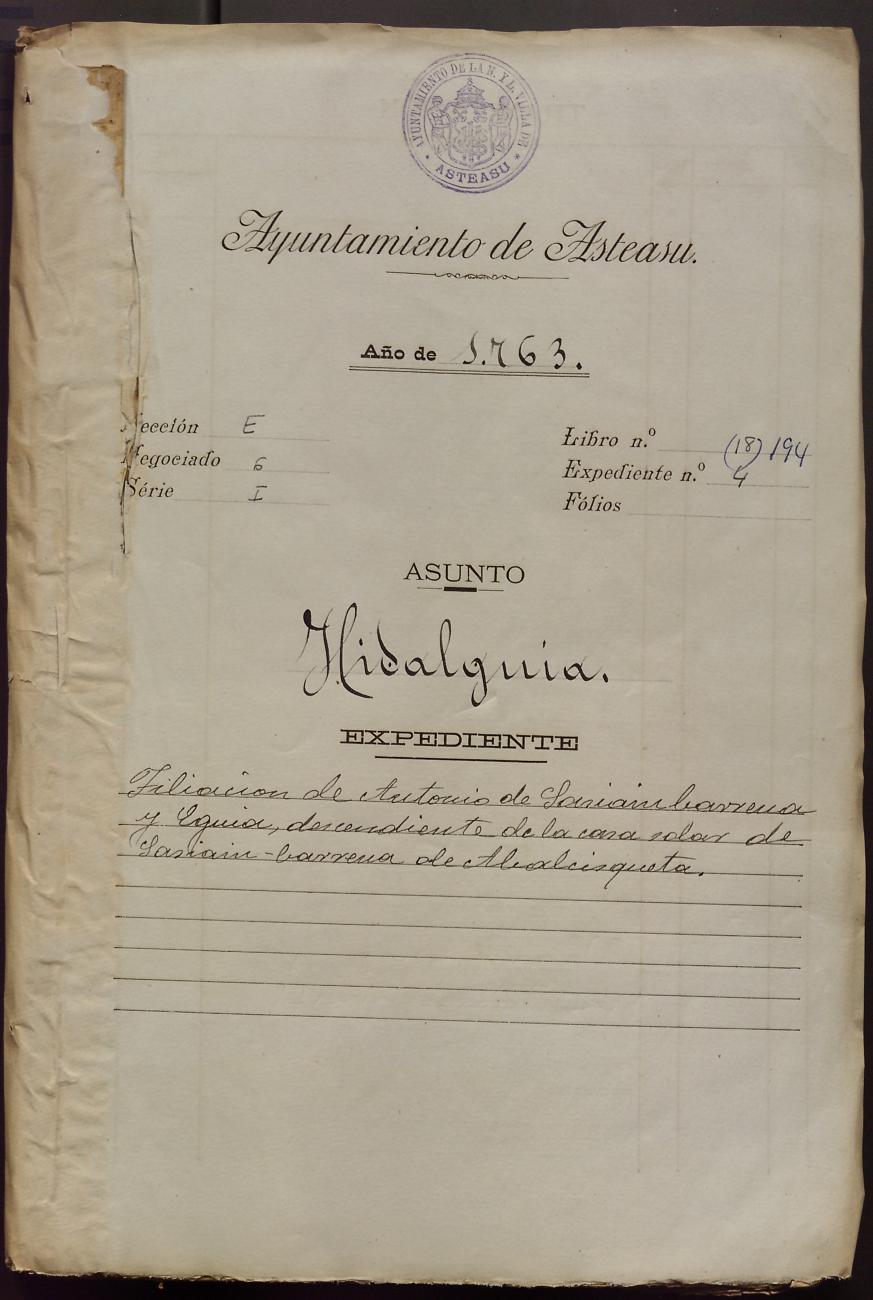 AYUNTAMIENTO DE LA N. Y L. VILLA DE
* ASTEASU *
Ayuntamiento de Asteasu.
Año de 1.763.
Sección E
Negociado 6
Série I
Libro n.º (18) 194
Expediente n.º 4
Fólios
ASUNTO
Hidalguia.
EXPEDIENTE
Filiacion de Antonio de Sasiain barrena
y Eguia, descendiente de la casa solar de
Sasiain-barrena de Abalcisqueta.